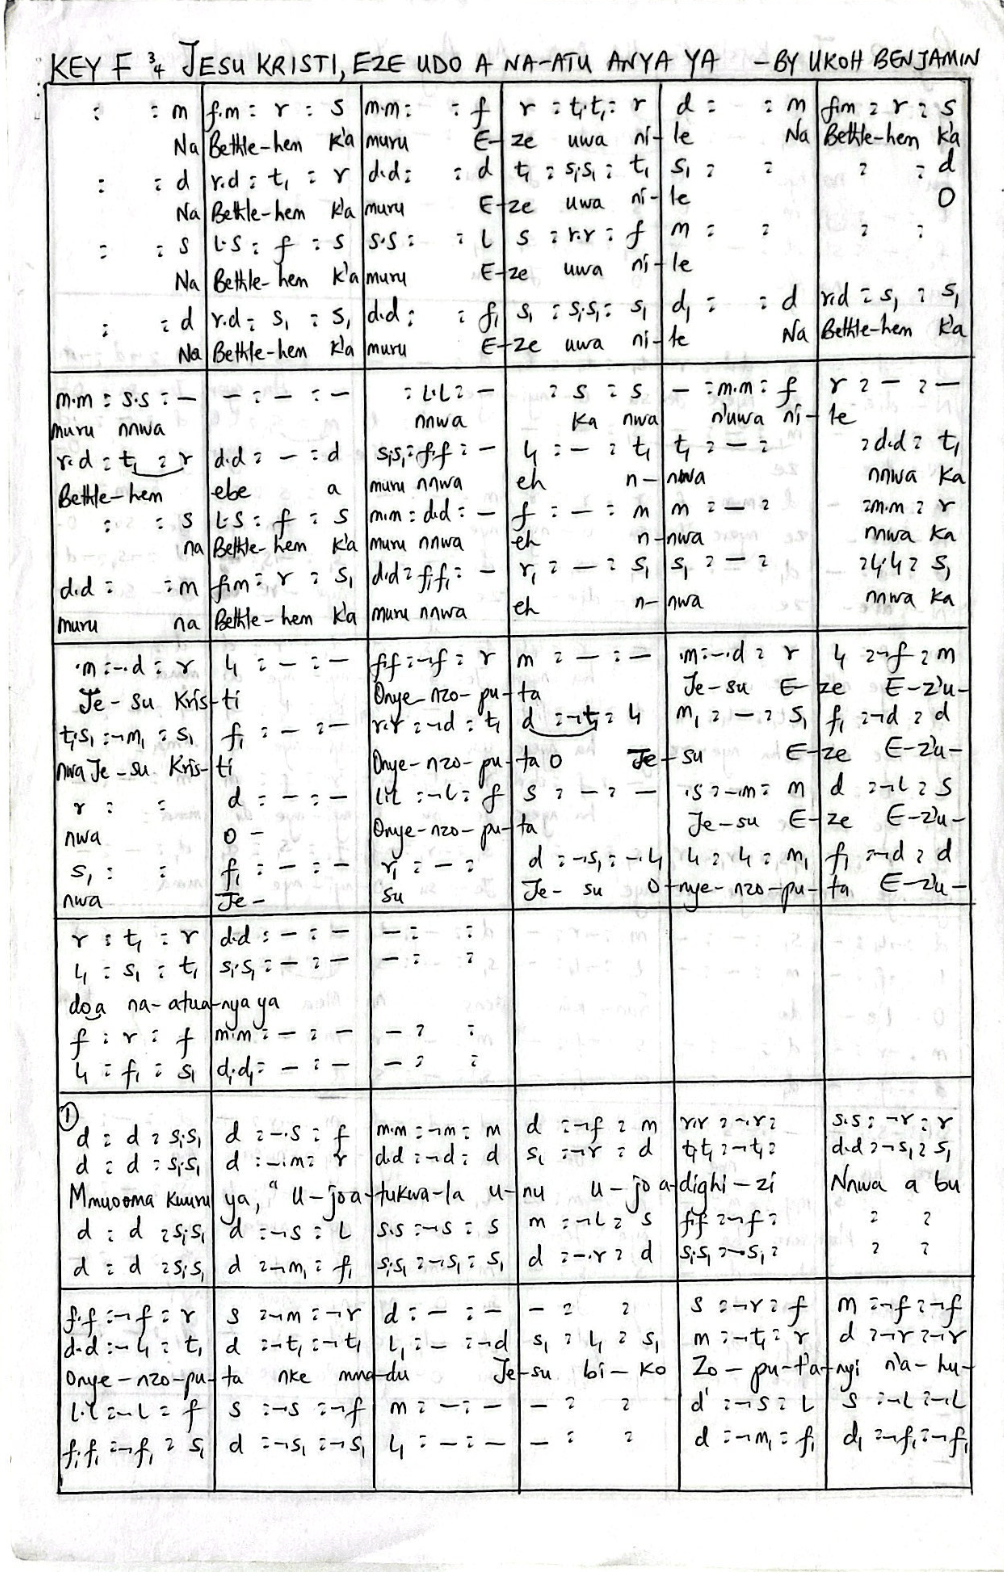 KEY F 3/4 JESU KRISTI, EZE UDO A NA-ATU ANYA YA - BY UKOH BENJAMIN
: : m | f.m : r : s | m.m : : f | r : t₁.t₁ : r | d : : m | f.m : r : s
Na | Bethle-hem k'a | muru E- | ze uwa ni- | le Na | Bethle-hem ka
: : d | r.d : t₁ : r | d.d : : d | t₁ : s₁.s₁ : t₁ | s₁ : : | : : d
Na | Bethle-hem k'a | muru E- | ze uwa ni- | le | O
: : s | l.s : f : s | s.s : : l | s : r.r : f | m : : | : :
Na | Bethle-hem k'a | muru E- | ze uwa ni- | le
: : d | r.d : s₁ : s₁ | d.d : : f₁ | s₁ : s₁.s₁ : s₁ | d₁ : : d | r.d : s₁ : s₁
Na | Bethle-hem k'a | muru E- | ze uwa ni- | le Na | Bethle-hem k'a
m.m : s.s : - | - : - : - | : l.l : - | : s : s | - : m.m : f | r : - : -
muru nnwa | nnwa | ka nwa | n'uwa ni- | le
r.d : t₁ : r | d.d : - : d | s₁.s₁ : f₁.f₁ : - | l₁ : - : t₁ | t₁ : - : | : d.d : t₁
Bethle-hem | ebe a | muru nnwa | eh n- | nwa | nnwa ka
: : s | l.s : f : s | m.m : d.d : - | f : - : m | m : - : | : m.m : r
na | Bethle-hem k'a | muru nnwa | eh n- | nwa | nnwa ka
d.d : : m | f.m : r : s₁ | d.d : f₁.f₁ : - | r₁ : - : s₁ | s₁ : - : | : l₁.l₁ : s₁
muru na | Bethle-hem k'a | muru nnwa | eh n- | nwa | nnwa ka
.m : -.d : r | l₁ : - : - | f.f : -.f : r | m : - : - | .m : -.d : r | l₁ : -.f : m
Je-su Kris- | ti | Onye-nzo-pu- | ta | Je-su E- | ze E-z'u-
t₁.s₁ : -.m₁ : s₁ | f₁ : - : - | r.r : -.d : t₁ | d : -.t₁ : l₁ | m₁ : - : s₁ | f₁ : -.d : d
nwa Je-su Kris- | ti | Onye-nzo-pu- | ta O Je- | su E- | ze E-z'u-
r : : | d : - : - | l.l : -.l : f | s : - : - | .s : -.m : m | d : -.l : s
nwa | O - | Onye-nzo-pu- | ta | Je-su E- | ze E-z'u-
s₁ : : | f₁ : - : - | r₁ : - : | d : -.s₁ : -.l₁ | l₁ : l₁ : m₁ | f₁ : -.d : d
nwa | Je- | su | Je- su O- | nye-nzo-pu- | ta E-z'u-
r : t₁ : r | d.d : - : - | - : :
l₁ : s₁ : t₁ | s₁.s₁ : - : - | - : :
doa na-atua- | nya ya
f : r : f | m.m : - : - | - : :
l₁ : f₁ : s₁ | d₁.d₁ : - : - | - : :
①
d : d : s₁.s₁ | d : -.s : f | m.m : -.m : m | d : -.f : m | r.r : -.r : | s.s : -.r : r
d : d : s₁.s₁ | d : -.m : r | d.d : -.d : d | s₁ : -.r : d | t₁.t₁ : -.t₁ : | d.d : -.s₁ : s₁
Mmuooma kwuru | ya, " U-joa- | tukwa-la u- | nu u-jo a- | dighi-zi | Nnwa a bu
d : d : s₁.s₁ | d : -.s : l | s.s : -.s : s | m : -.l : s | f.f : -.f : | : :
d : d : s₁.s₁ | d : -.m₁ : f₁ | s₁.s₁ : -.s₁ : s₁ | d : -.r : d | s₁.s₁ : -.s₁ : | : :
f.f : -.f : r | s : -.m : -.r | d : - : - | - : : | s : -.r : f | m : -.f : -.f
d.d : -.l₁ : t₁ | d : -.t₁ : -.t₁ | l₁ : - : -.d | s₁ : l₁ : s₁ | m : -.t₁ : r | d : -.r : -.r
Onye-nzo-pu- | ta nke mma- | du Je- | su bi-ko | Zo-pu-t'a- | nyi n'a-hu-
l.l : -.l : f | s : -.s : -.f | m : - : - | - : : | d' : -.s : l | s : -.l : -.l
f₁.f₁ : -.f₁ : s₁ | d : -.s₁ : -.s₁ | l₁ : - : - | - : : | d : -.m₁ : f₁ | d₁ : -.f₁ : -.f₁